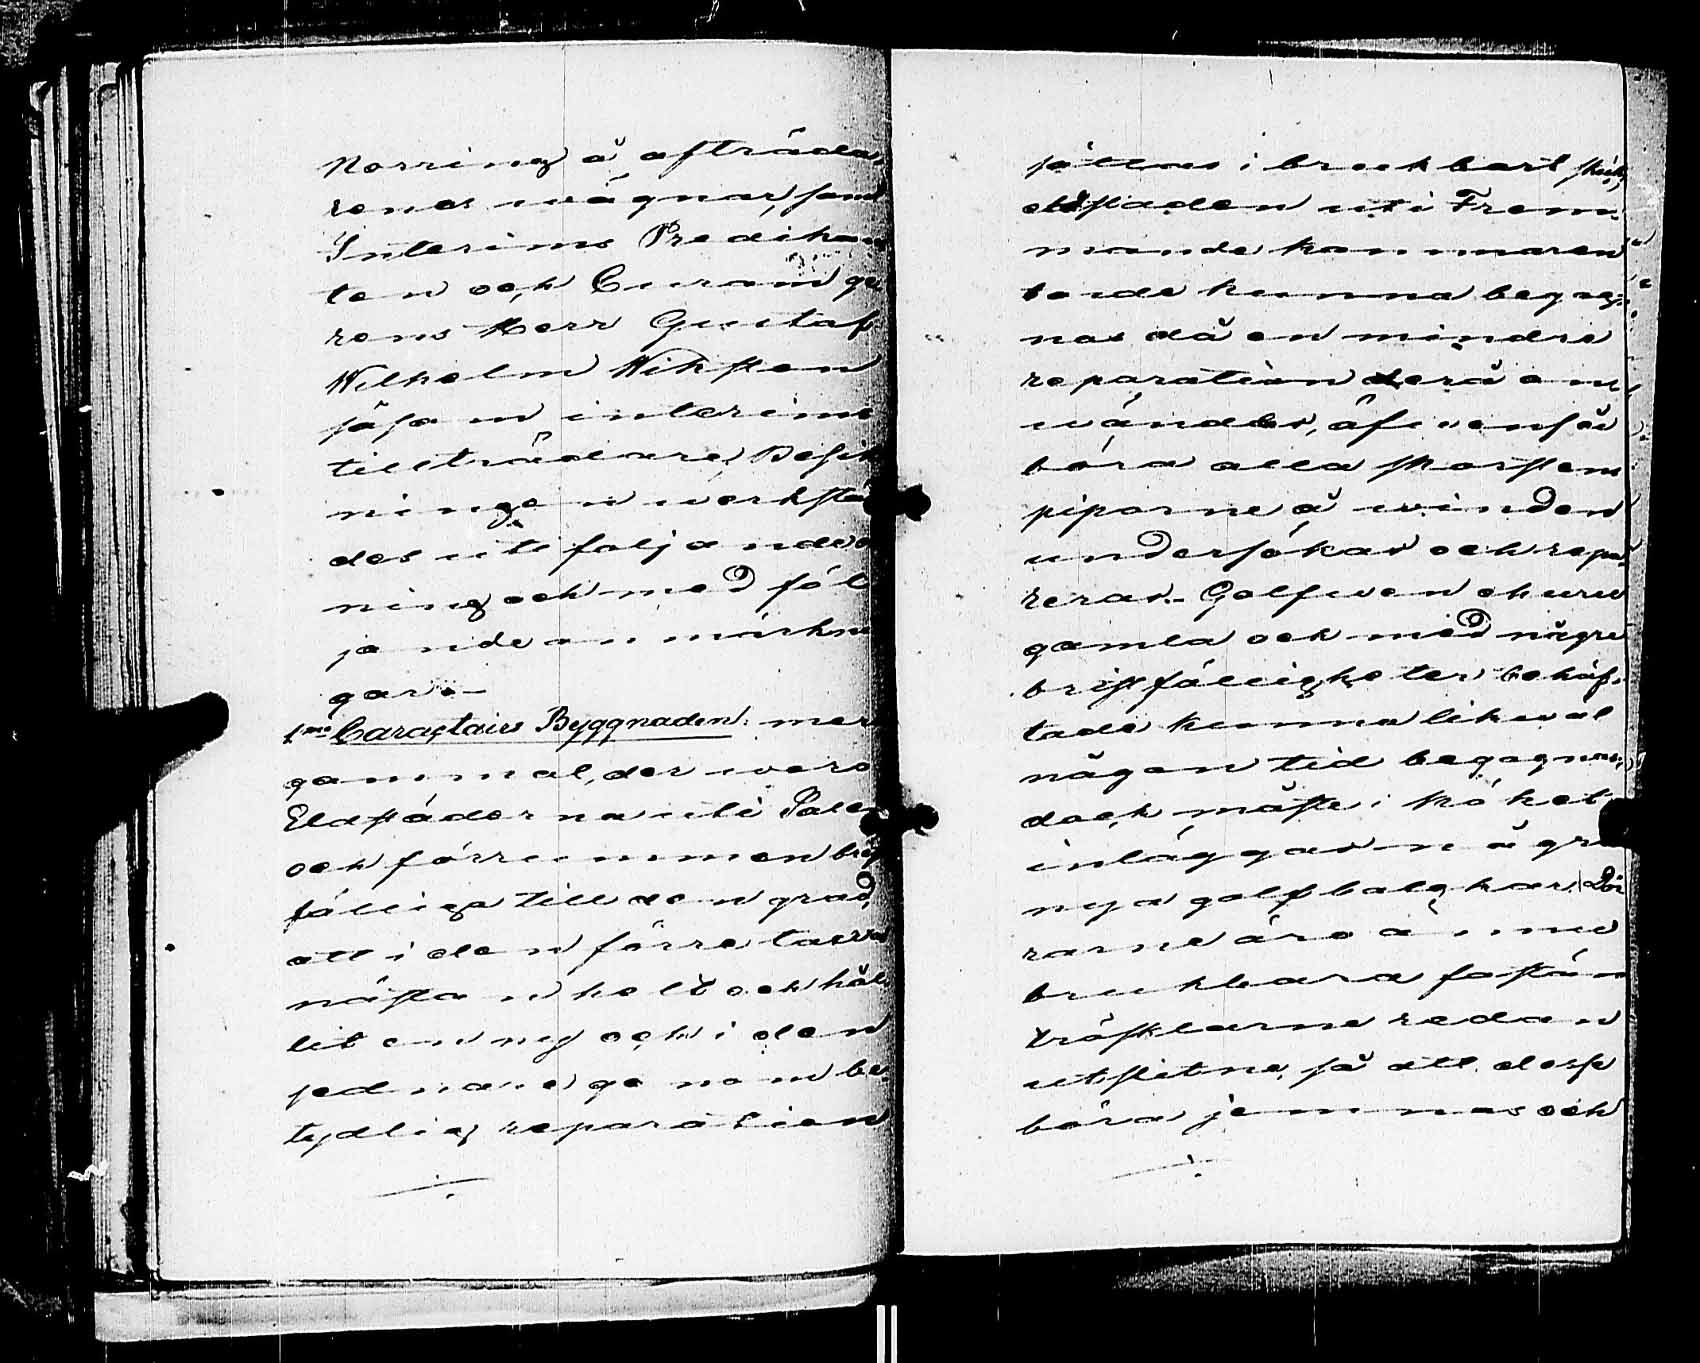 Norring å afträda,
renes wägnar, samt
Interims Predikan
ten och Curam ge,
rens Herr Gustaf
Wilhelm Wiksten
såsom interims
tillträdare, Besikt
ningen werkstäl
des uti följande o
ning och med föl
jande anmärknin
gar:-
1mo Caractairs Byggnaden: mer
gammal, der woro
Eldstäderna uti Salen
och förrummen brist
fälliga till den grad,
att i den förre tarfva
nästan helt och hål,
lit en ny och i den
sednare genom be,
tydlig reparation
sättas i brukbart skick,
eldstaden uti Frem,
mande kammaren
torde kunna begag,
nas då en mindre
reparation derå an,
wändes, äfwensåu
böra alla skorstens
piporne å winden
undersökas och repa,
reras.- Golfwen ehuru
gamla och med några
bristfälligheter behäf,
tade kunna likwäl
någon tid begagnas,
dock måste i köket
inläggas några
nya golfbalgkar. Dör
rarne äro ännu
brukbara fastän
trösklarne redan
utslitne, så att desse
böra jemnas och